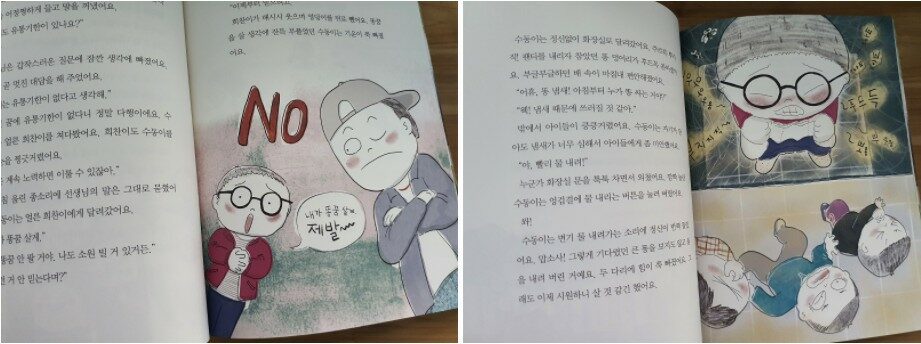 어정쩡하게 들고 말을 꺼냈어요.
도 유통기한이 있나요?"
은 갑작스러운 질문에 잠깐 생각에 빠졌어요.
곧 멋진 대답을 해 주었어요.
는 유통기한이 없다고 생각해."
꿈에 유통기한이 없다니 정말 다행이에요. 수
얼른 희찬이를 쳐다봤어요. 희찬이도 수동이를
을 찡긋거렸어요.
계속 노력하면 이룰 수 있잖아."
침 울린 종소리에 선생님의 말은 그대로 묻혔어
동이는 얼른 희찬이에게 달려갔어요.
똥꿈 살게."
똥꿈 안 팔 거야. 나도 소원 빌 게 있거든."
런 거 안 믿는다며?"
희찬이가 해시시 웃으며 엉덩이를 뒤로 뺐어요. 똥꿈
을 살 생각에 잔뜩 부풀었던 수동이는 기운이 쭉 빠졌
어요.
NO
내가 똥꿈 살게
제발~
수동이는 정신없이 화장실로 달려갔어요.
팬티를 내리자 참았던 똥 덩어리가
요. 부글부글하던 배 속이 마침내 편안해졌어요.
"어휴, 똥 냄새! 아침부터 누가 똥 싸는 거야?"
"웩! 냄새 때문에 쓰러질 것 같아."
밖에서 아이들이 웅성거렸어요. 수동이는
아도 냄새가 너무 심해서 아이들에게 좀 미안했어요.
"야, 빨리 물 내려!"
누군가 화장실 문을 툭툭 차면서 외쳤어요.
수동이는 엉겁결에 물 내리는 버튼을 눌러 버렸어요.
쏴!
수동이는 변기 물 내려가는 소리에 정신이 번쩍 들었
어요. 맙소사! 그렇게 기다렸던 큰 똥을 보지도 않고 물
을 내려 버린 거예요. 두 다리에 힘이 쭉 빠졌어요. 그
래도 이제 시원하니 살 것 같긴 했어요.